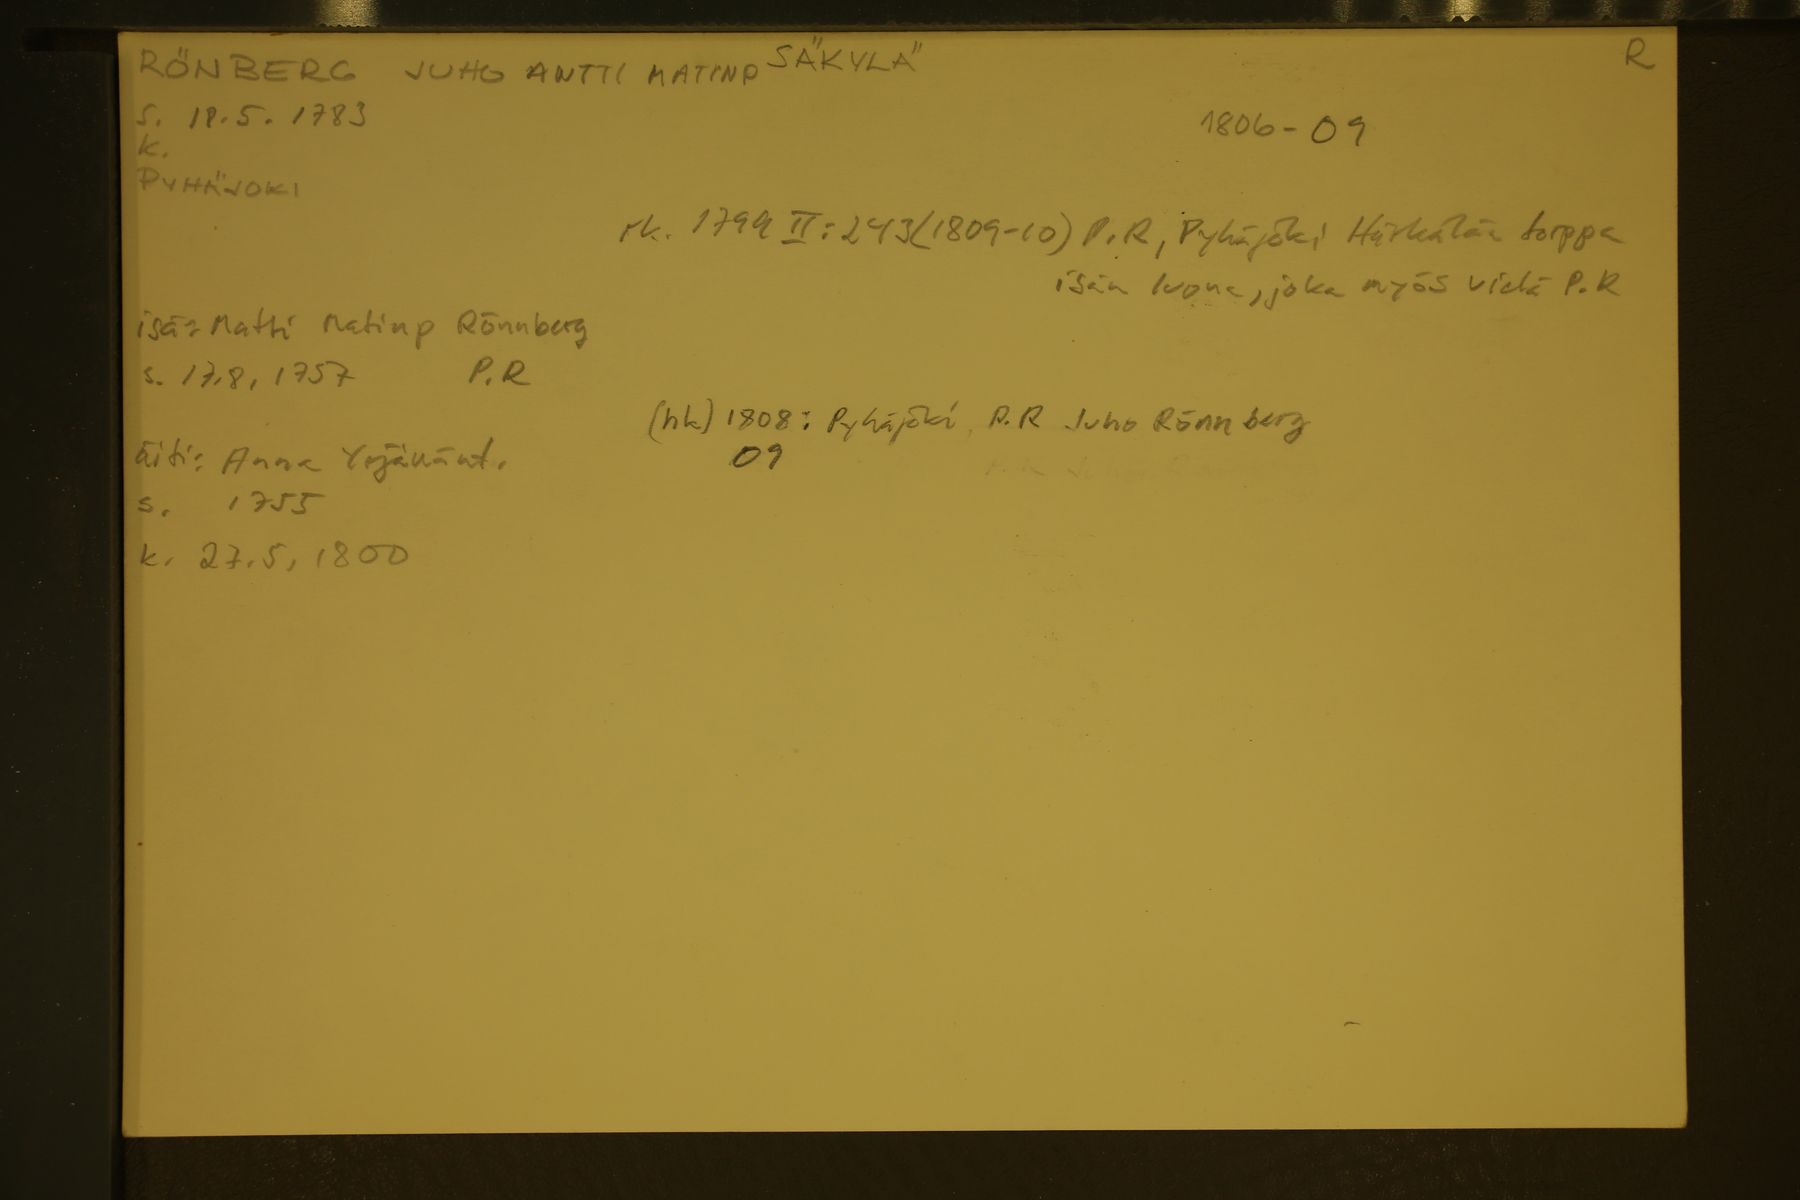 RÖNBERG JUHO ANTTI MATINP SÄKYLÄ R
s. 18.5. 1783
1806-09
k.
PYHÄJOKI
rk. 1799 II: 243 (1809-10) P.R, Pyhäjoki torppa
isän luona, joka myös vielä P.R
isä: Matti Matinp Rönnberg
s. 17.8, 1757 P.R
(hk) 1808: Pyhäjoki P.R Juho Rönnberg
09
äiti: Anna Yrjänänt.
s. 1755
k. 27.5, 1800